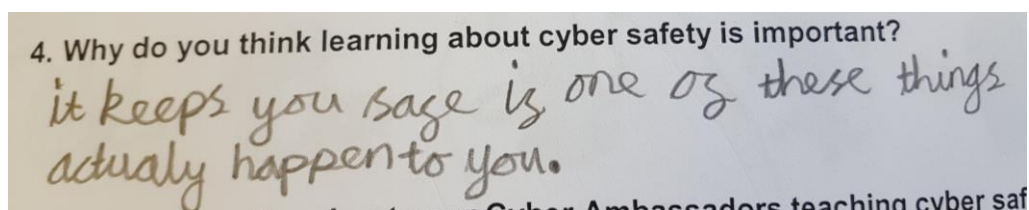 4. Why do you think learning about cyber safety is important?
it keeps you safe if one of these things
actualy happen to you.
Cyber Ambassadors teaching cyber saf